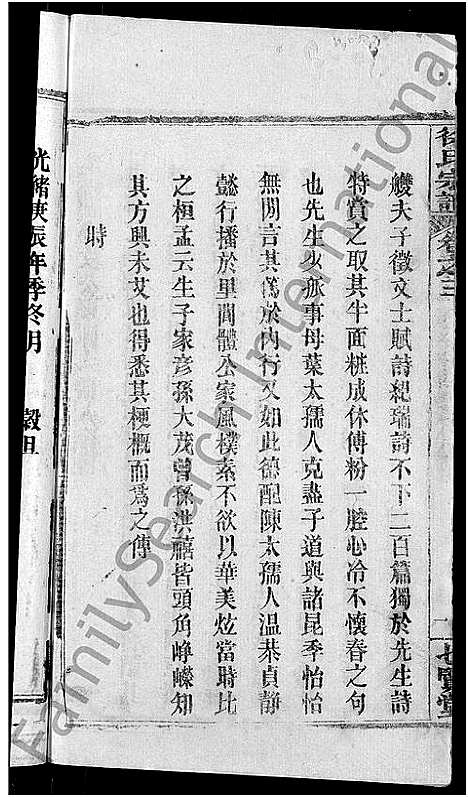 徐氏宗譜 卷之三
七賢堂
艭夫子徵文士賦詩紀瑞詩不下二百篇獨於先生詩
特賞之取其半面粧成休傅粉一腔心冷不懷春之句
也先生少孤事母葉太孺人克盡子道與諸昆季怡怡
無閒言其篤於內行又如此德配陳太孺人溫恭貞靜
懿行播於里閭體公家風樸素不欲以華美炫當時比
之桓孟云生子家彥孫大茂曾孫洪禧皆頭角崢嶸知
其方興未艾也得悉其梗概而為之傳
時
光緒庚辰年季冬月 穀旦
FamilySearch International